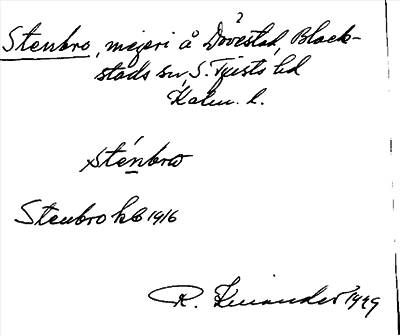 Stenbro, mejeri å Dövestad, Black-
stads sn, S. Tjusts hd
Kalm. l.
sténbrω
Stenbro hb 1916
R. Kinander 1929